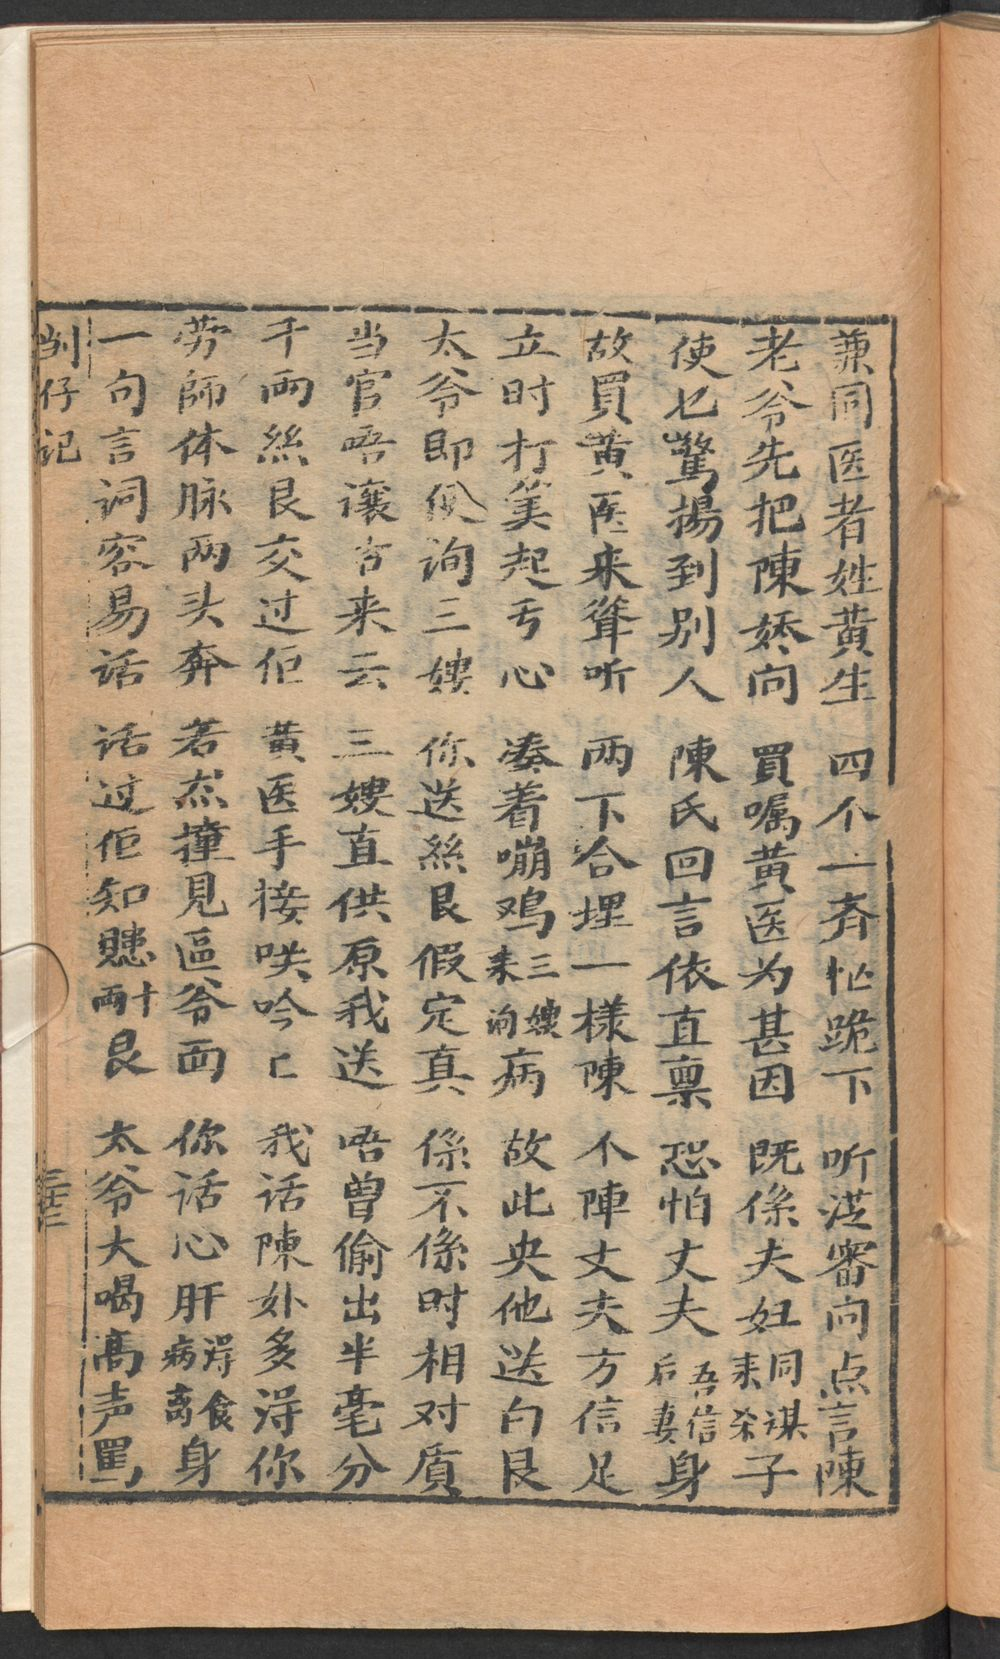 兼同医者姓黄生　四个一齐忙跪下　听洪審问点言陳
老爷先把陳娇问　買嘱黄医为甚因　既係夫妇同谋来杀子
使乜驚揚到别人　陳氏回言依直禀　恐怕丈夫吾信后妻身
故買黄医来聳听　两下合埋一様陳　不陣丈夫方信足
立时打筭起亏心　凑着嘣鸡三嫂来询病　故此央他送白艮
太爷即便询三嫂　你送絲艮假定真　係不係时相对质
当官唔讓言来云　三嫂直供原我送　唔曾偷出半毫分
千両絲艮交过佢　黄医手接哄吟匕　我话陳外多得你
劳師体脉两头奔　若然撞見區爷面　你话心肝得食病离身
一句言词容易话　话过佢知贃十両艮　太爷大喝高声罵
㓤仔记
三十二